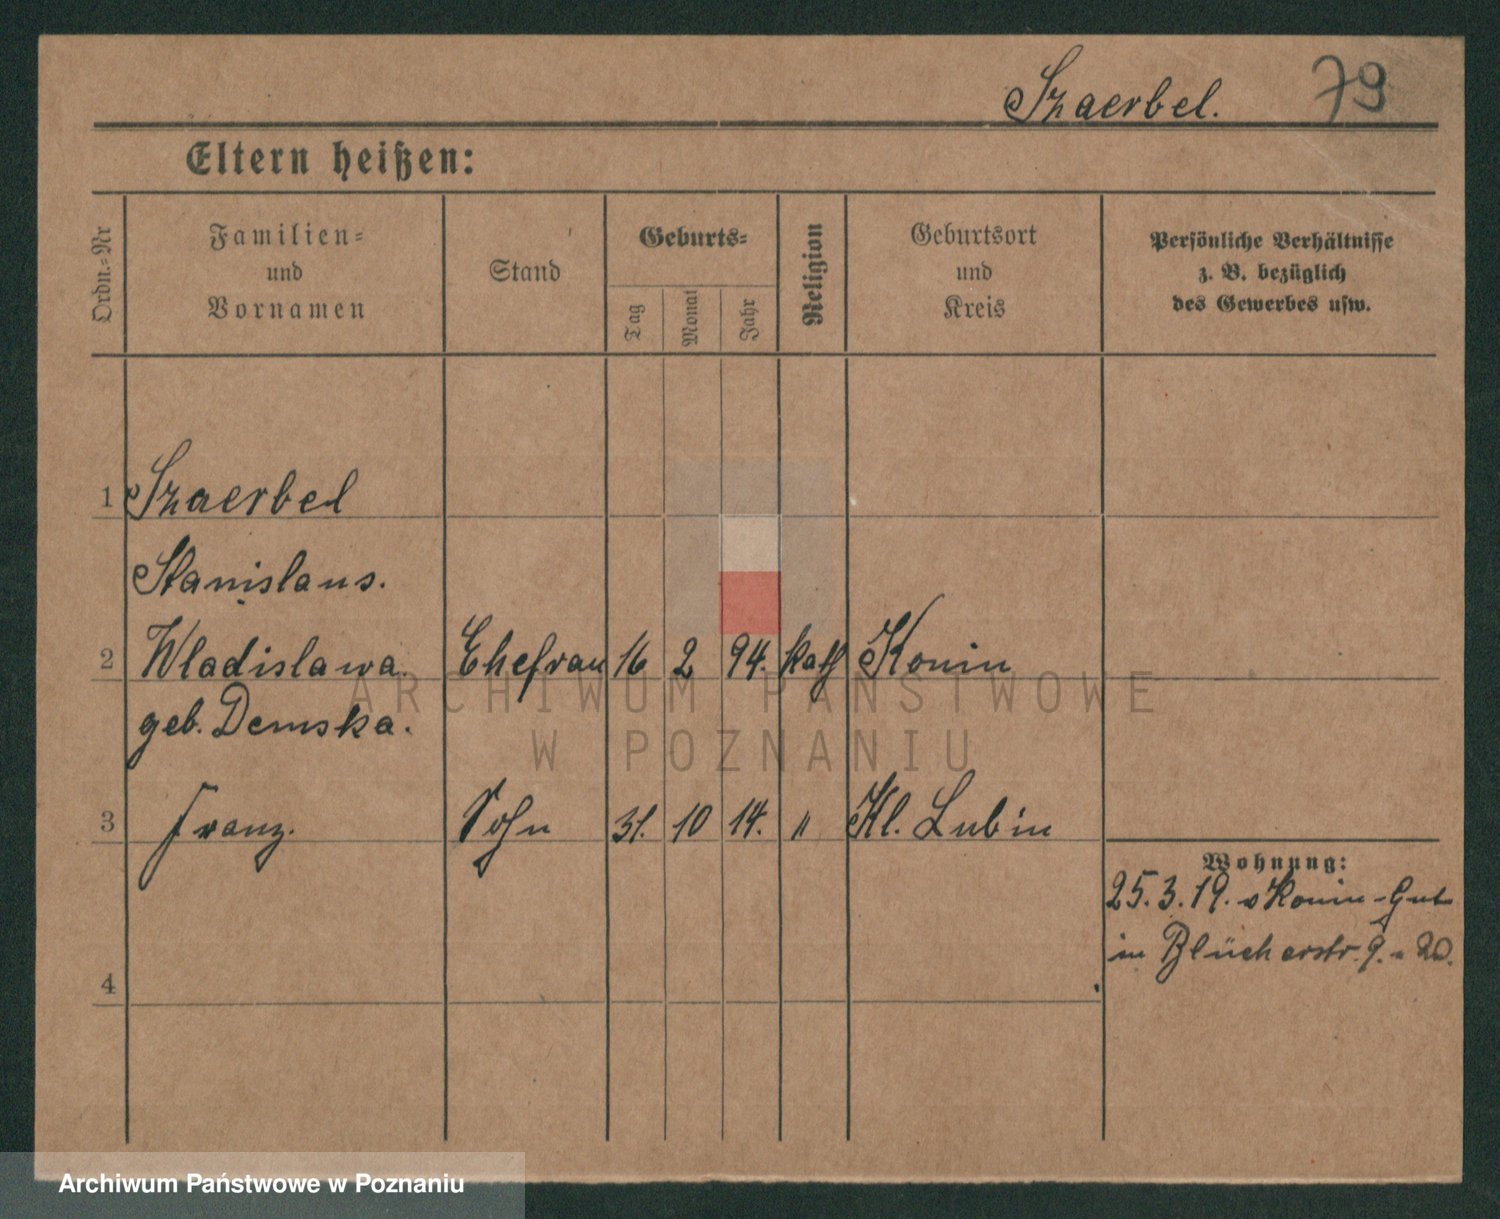 Szaerbel. 79
Eltern heißen:
Ordn.=Nr
Familien=
und
Vornamen
Stand
Geburts=
Tag
Monat
Jahr
Religion
Geburtsort
und
Kreis
Persönliche Verhältnisse
z. B. bezüglich
des Gewerbes usw.
1 Szaerbel
Stanislaus.
2 Wladislawa Ehefrau 16 2 94. kath Konin
geb. Demska.
3 Franz. Sohn 31. 10 14. " Kl. Lubin
Wohnung:
25.3.19. v Konin-Gut
in Blücherstr. 9. - 20.
4
ARCHIWUM PAŃSTWOWE
W POZNANIU
Archiwum Państwowe w Poznaniu